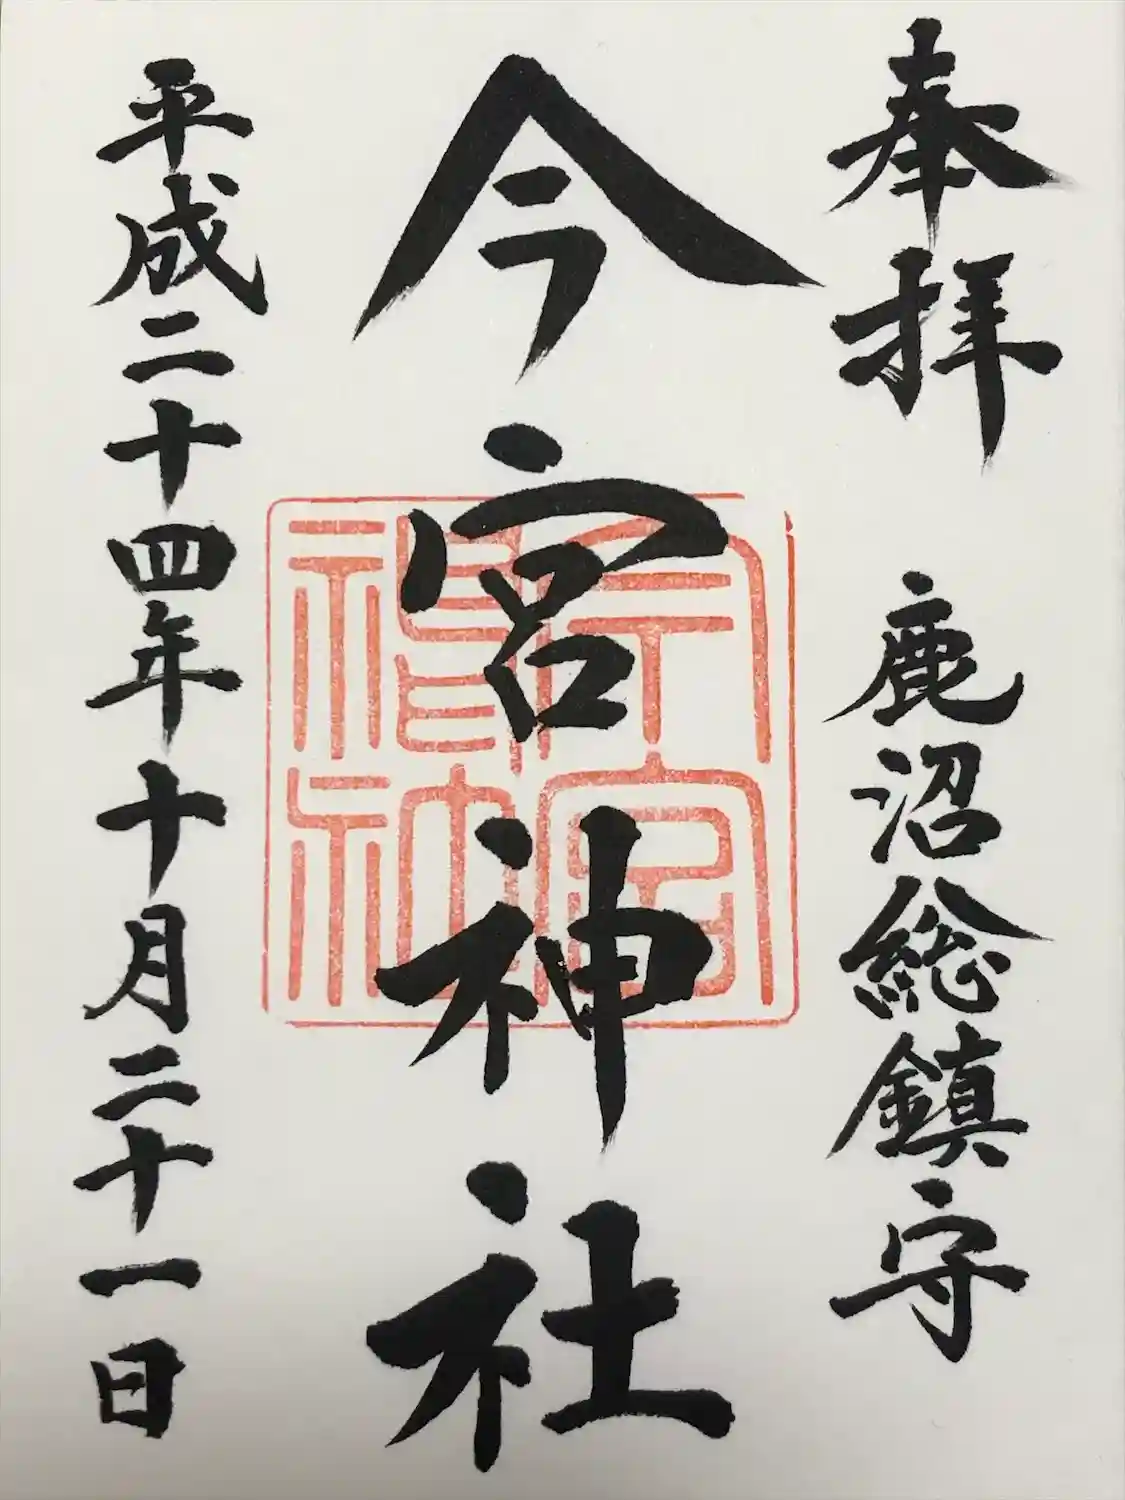 奉拝 鹿沼総鎮守
今宮神社
今宮神社
平成二十四年十月二十一日